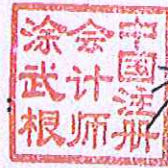 中国注册
会计师
涂武根